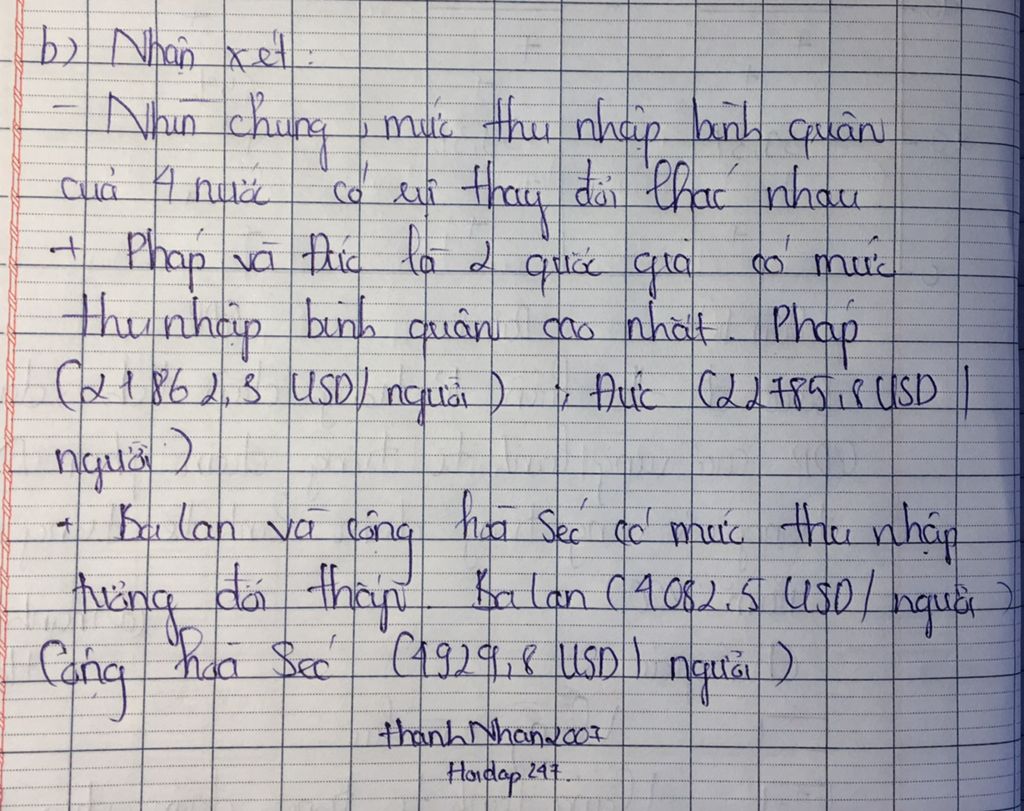 b) Nhận xét:
- Nhìn chung, mức thu nhập bình quân
quả 4 nước có sự thay đổi khác nhau
+ Pháp và Đức là 2 quốc gia có mức
thu nhập bình quân cao nhất. Pháp
(21862,3 USD/người); Đức (22785,8 USD/
người)
+ Ba lan và cộng hoà Séc có mức thu nhập
tương đối thấp. Ba lan (4082.5 USD/người)
Cộng hoà Séc (4929,8 USD/người)
thanhNhan2007
Hoidap247.